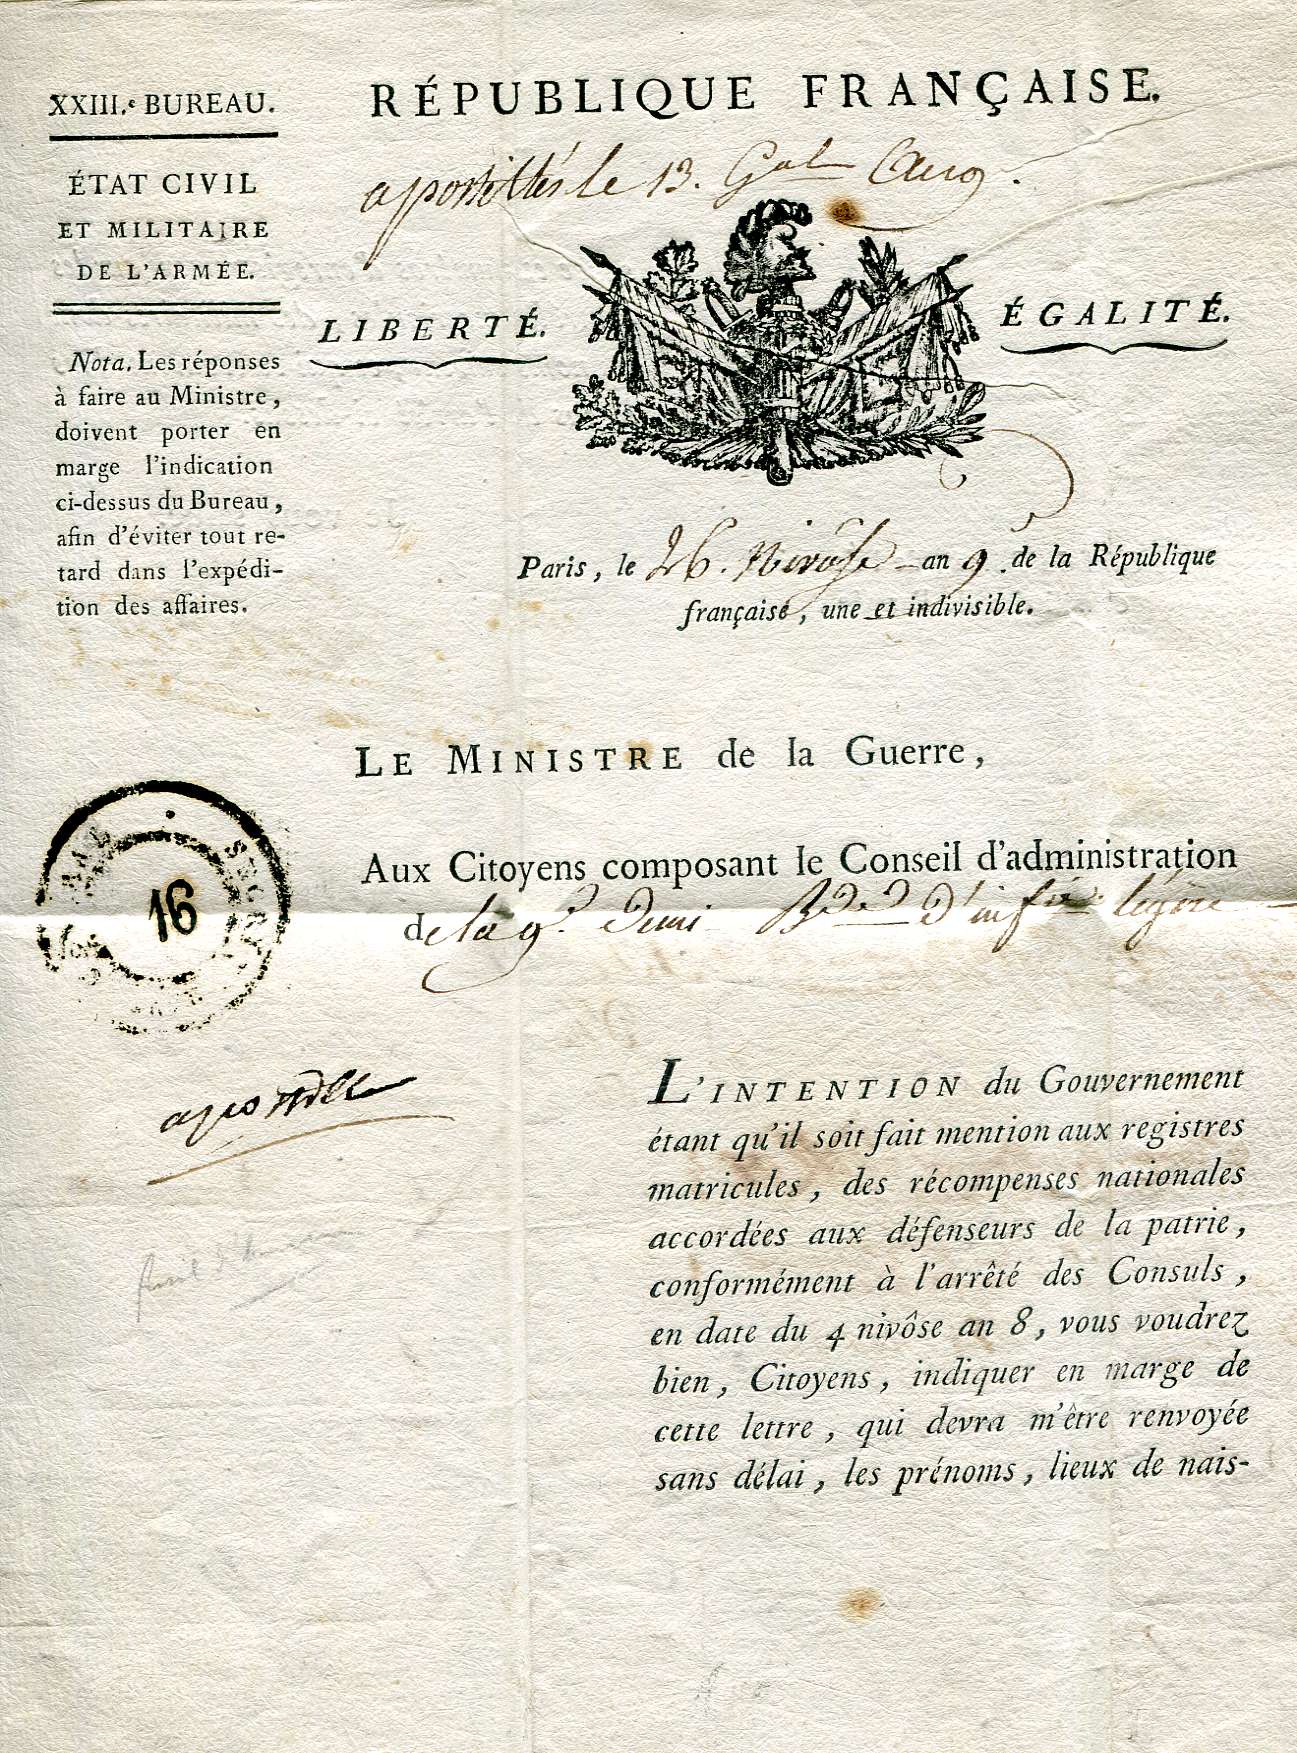 XXIII.e BUREAU.
ÉTAT CIVIL
ET MILITAIRE
DE L'ARMÉE.
Nota. Les réponses
à faire au Ministre,
doivent porter en
marge l'indication
ci-dessus du Bureau,
afin d'éviter tout re-
tard dans l'expédi-
tion des affaires.
RÉPUBLIQUE FRANÇAISE.
apostillés le 13. Gal
LIBERTÉ.
ÉGALITÉ.
Paris, le 26. Nivôse an 9. de la République
française, une et indivisible.
LE MINISTRE de la Guerre,
Aux Citoyens composant le Conseil d'administration
de la 9e. demi Bde d'infie légère
16
apostille
L'INTENTION du Gouvernement
étant qu'il soit fait mention aux registres
matricules, des récompenses nationales
accordées aux défenseurs de la patrie,
conformément à l'arrêté des Consuls,
en date du 4 nivôse an 8, vous voudrez
bien, Citoyens, indiquer en marge de
cette lettre, qui devra m'être renvoyée
sans délai, les prénoms, lieux de nais-